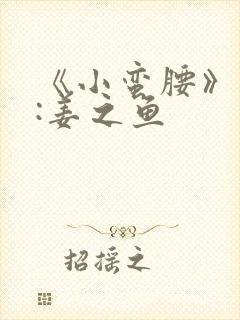 《小蛮腰》
:姜之鱼
招摇之